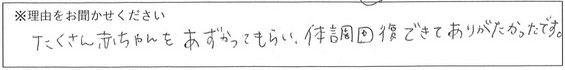 ※理由をお聞かせください
たくさん赤ちゃんを あずかってもらい、体調回復できてありがたかったです。